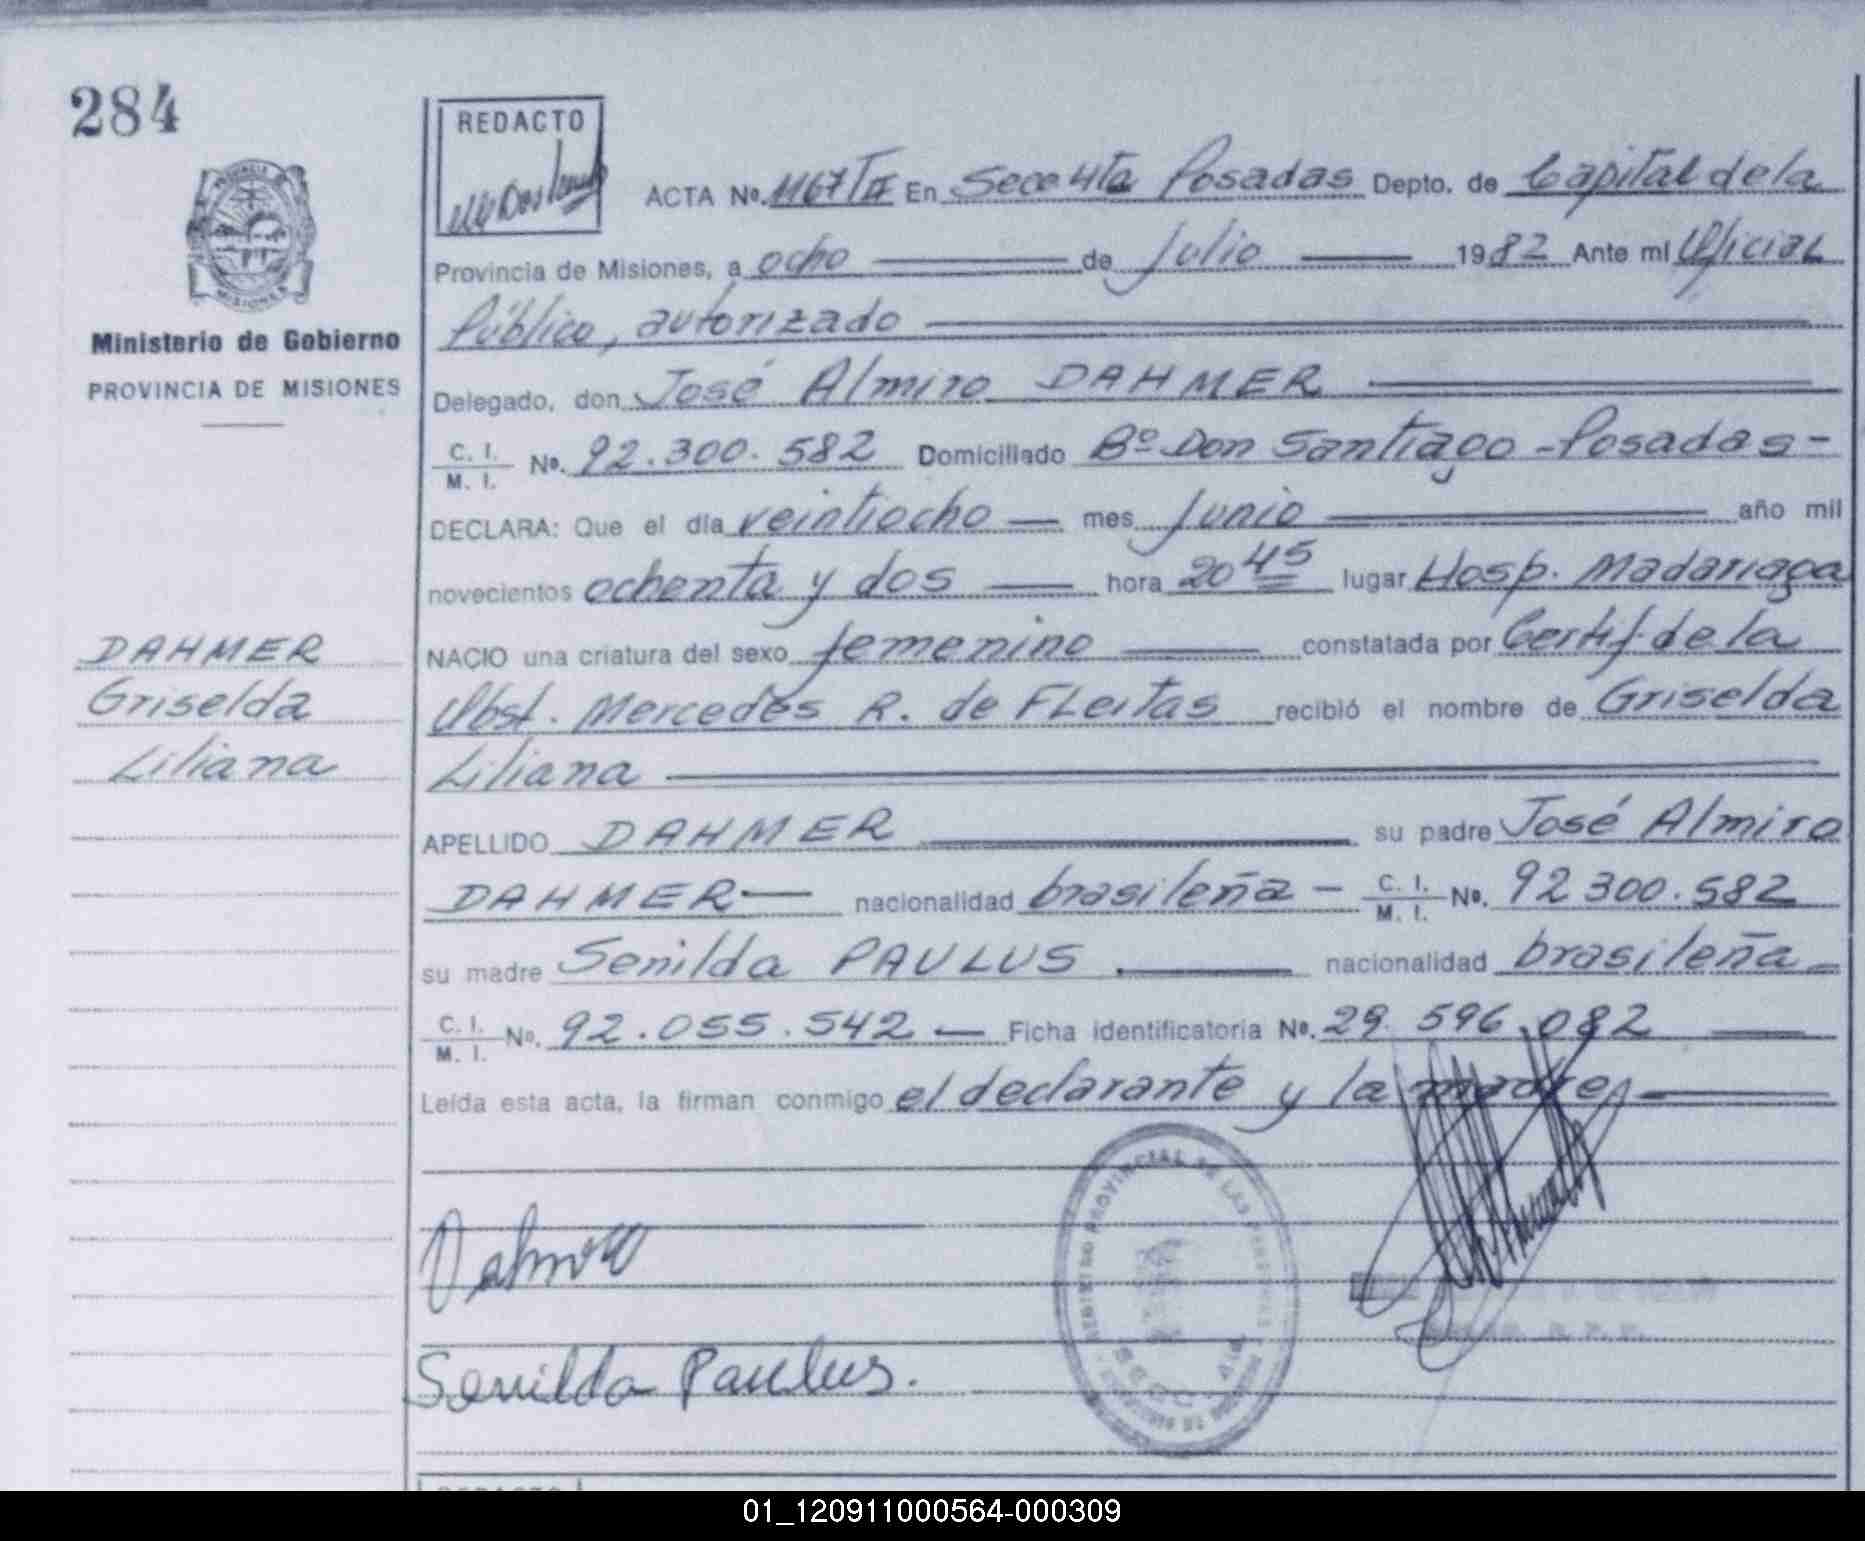 284
REDACTO
PROVINCIA DE
MISIONES
Ministerio de Gobierno
PROVINCIA DE MISIONES
DAHMER
Griselda
Liliana
ACTA No. 1167/II En Secc 4ta Posadas Depto. de Capital de la
Provincia de Misiones, a ocho de Julio 1982 Ante mí Oficial
Público, autorizado
Delegado, don José Almiro DAHMER
C. I. M. I. No. 92.300.582 Domiciliado Bº Don Santiago - Posadas -
DECLARA: Que el día veintiocho mes Junio año mil
novecientos ochenta y dos hora 20 45 lugar Hosp. Madariaga
NACIO una criatura del sexo femenino constatada por Certif. de la
Obst. Mercedes R. de FLeitas recibió el nombre de Griselda
Liliana
APELLIDO DAHMER su padre José Almiro
DAHMER nacionalidad brasileña - C. I. M. I. No. 92 300.582
su madre Senilda PAULUS nacionalidad brasileña
C. I. M. I. No. 92.055.542 Ficha identificatoria No. 29.596.082
Leída esta acta, la firman conmigo el declarante y la madre
REGISTRO PROVINCIAL DE LAS PERSONAS
Senilda Paulus.
01_120911000564-000309